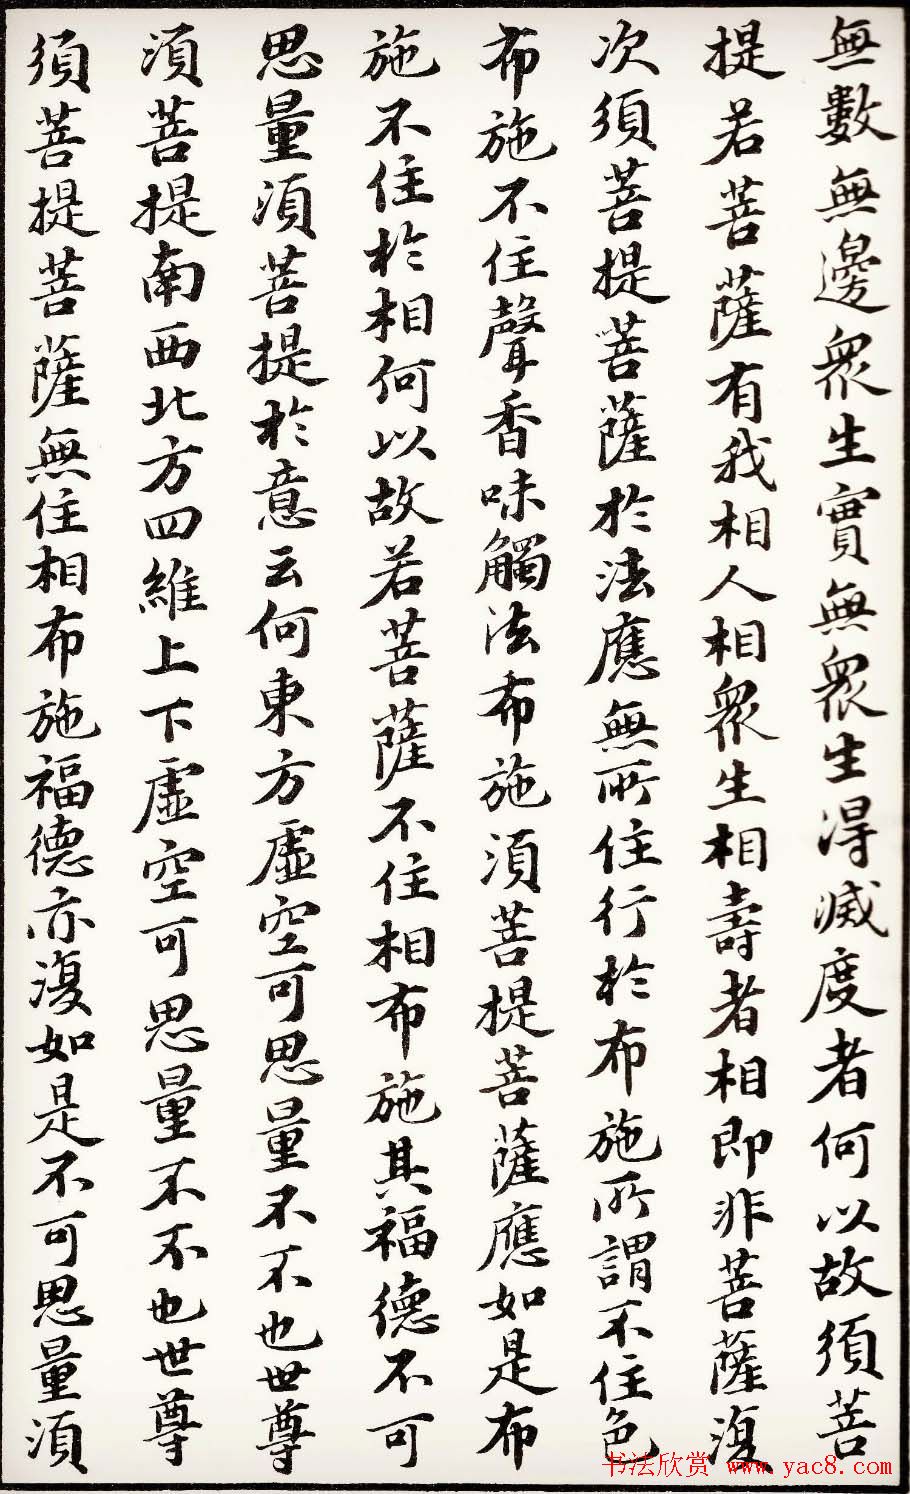 無數無邊衆生實無衆生得滅度者何以故須菩
提若菩薩有我相人相衆生相壽者相即非菩薩復
次須菩提菩薩於法應無所住行於布施所謂不住色
布施不住聲香味觸法布施須菩提菩薩應如是布
施不住於相何以故若菩薩不住相布施其福德不可
思量須菩提於意云何東方虛空可思量不不也世尊
須菩提南西北方四維上下虛空可思量不不也世尊
須菩提菩薩無住相布施福德亦復如是不可思量須
书法欣赏 www.yac8.com